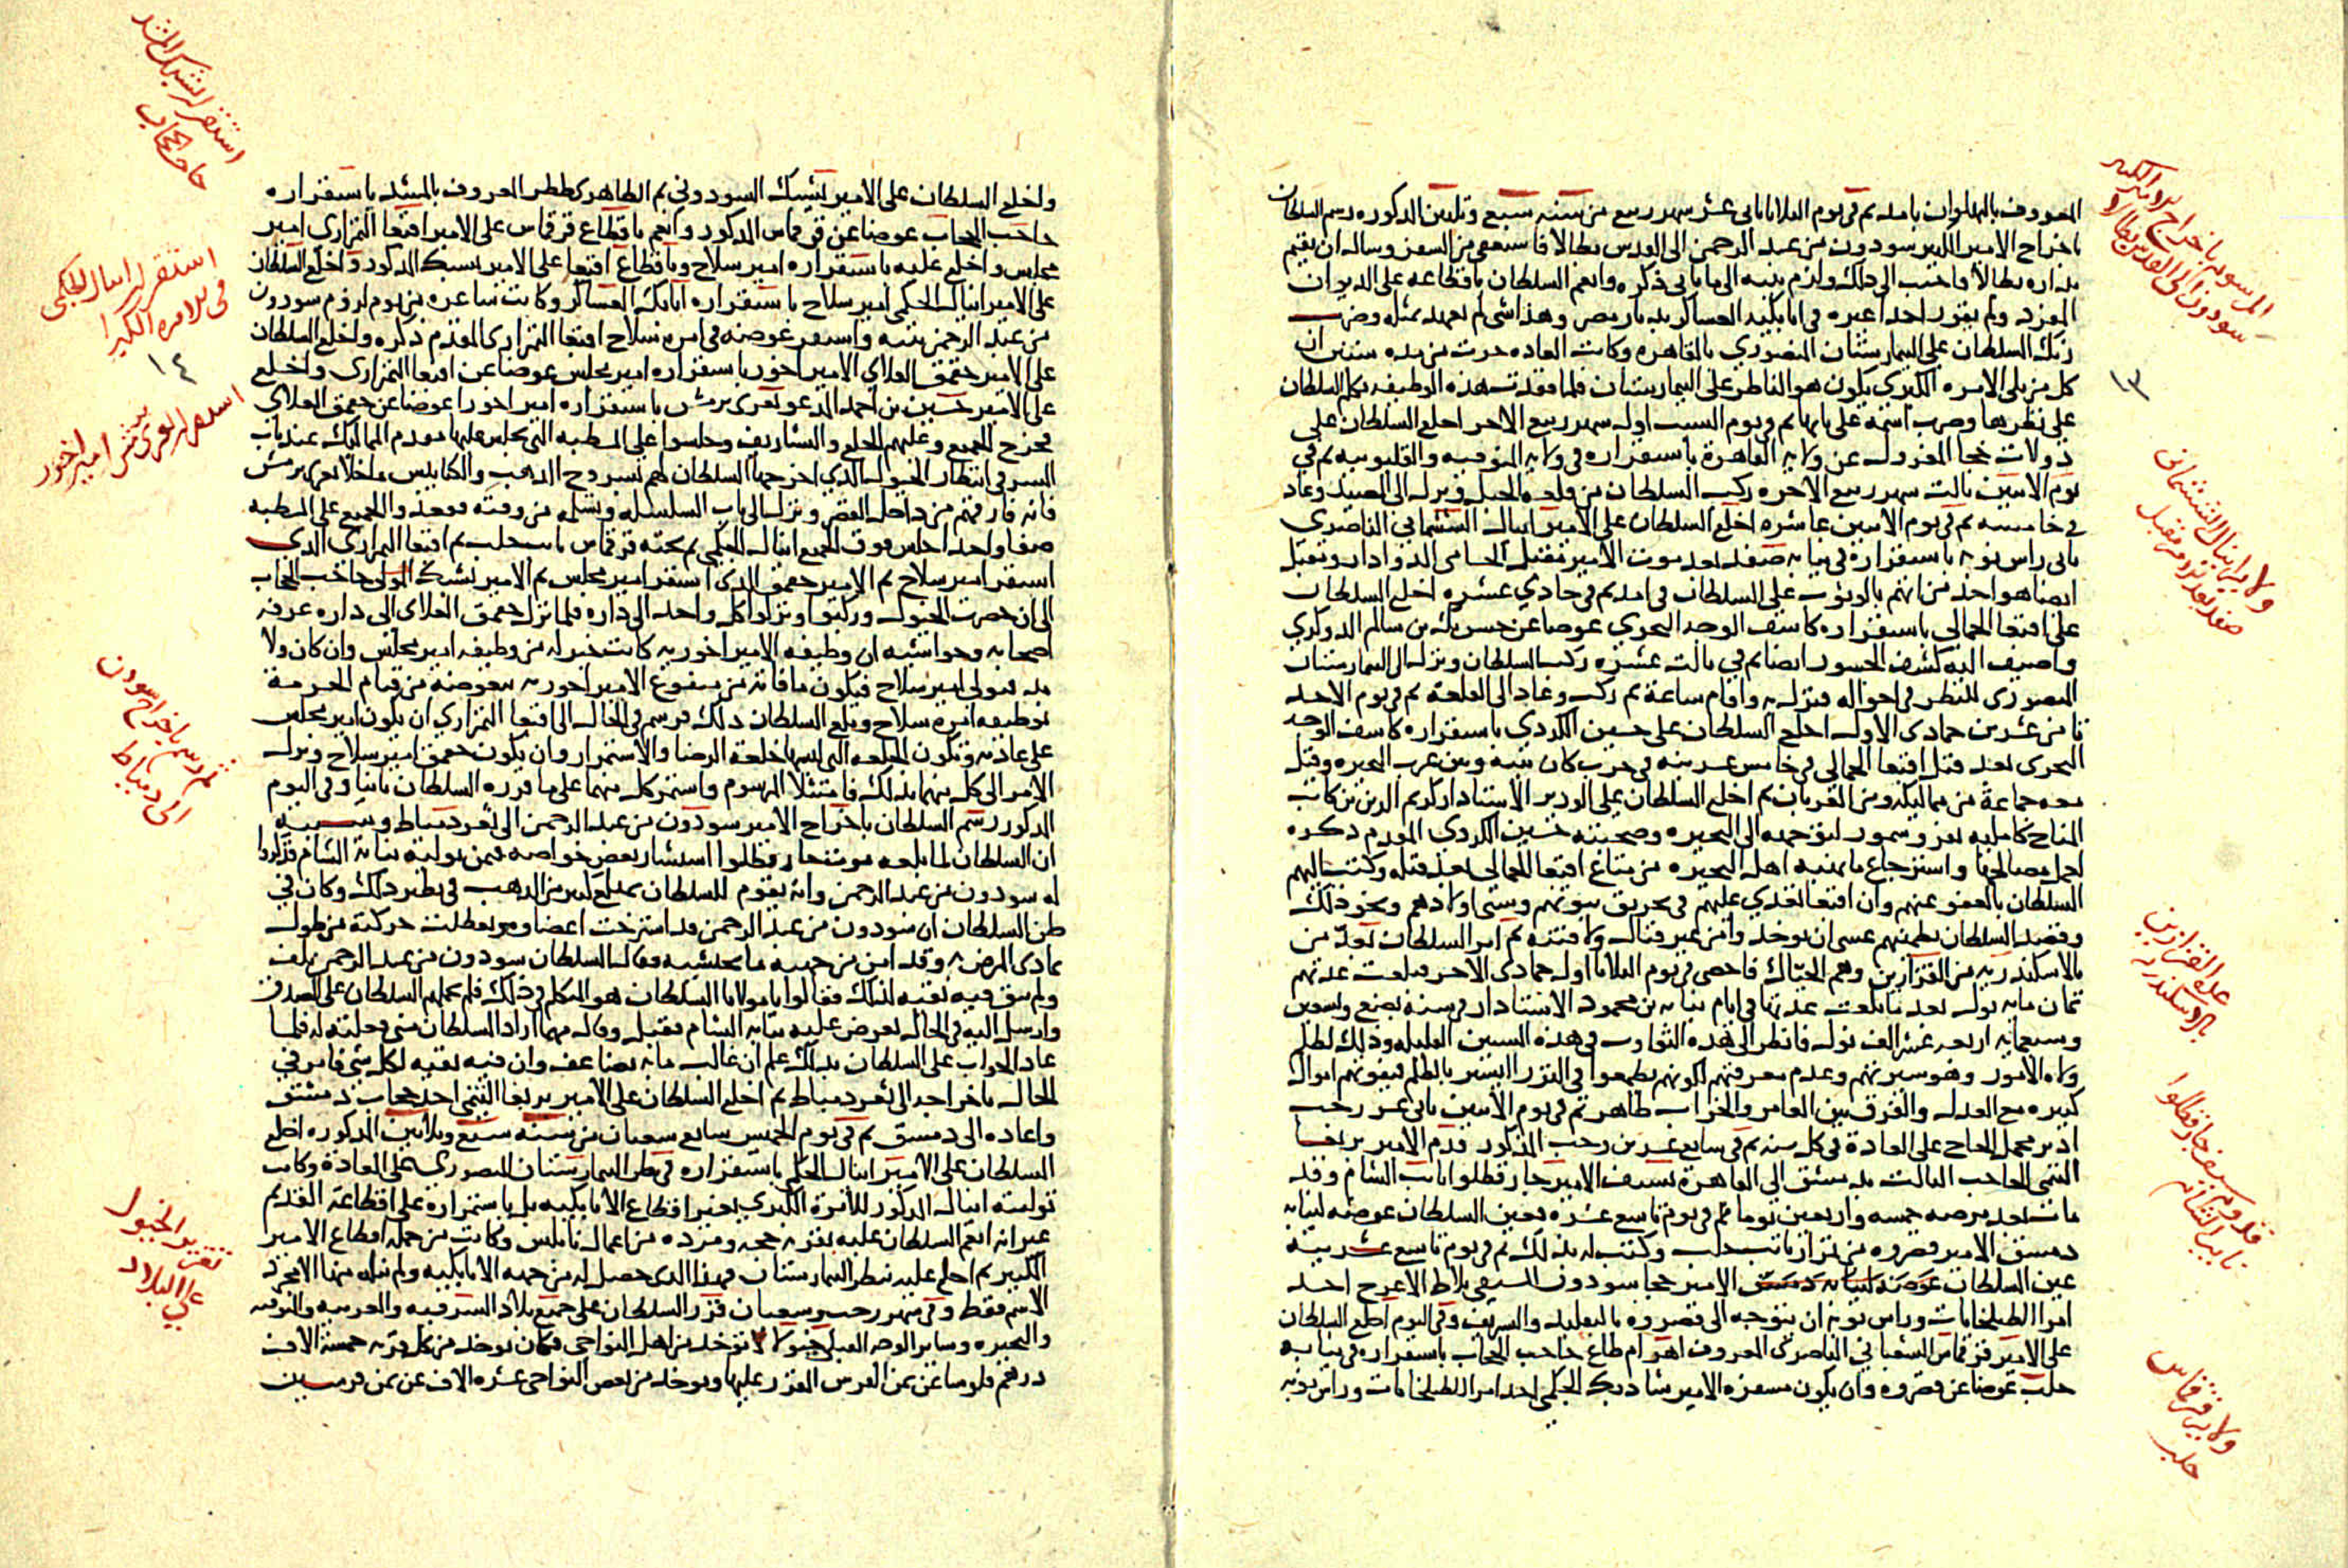 المعروف بالبهلوان بامد ثم في يوم الثلاثا ثاني عشر شهر ربيع من سنة سبع وثلثين المذكوره رسم السلطان
باخراج الامير الكبير سودون من عبد الرحمن الى القدس بطالا فاستعفى من السفر وسال ان يقيم
بداره بطالا فاجيب الى ذلك ولزم بيته الى ما ياتي ذكره وانعم السلطان باقطاعه على الديوان
المفرد ولم يقرر احدا غيره في اتابكية العساكر بديار مصر وهذا شي لم نعهد بمثله وفيه
ركب السلطان على البيمارستان المنصوري بالقاهره وكانت العاده جرت من مده سنين ان
كل من يلي الامره الكبرى يكون هو الناظر على البيمارستان فلما فقدت هذه الوظيفه تكلم السلطان
على نظرها وضرب اسمه على بابها ثم في يوم السبت اول شهر ربيع الاخر اخلع السلطان على
دولات خجا المعزول عن ولاية القاهرة باستقراره في ولاية المنوفيه والقليوبيه ثم في
يوم الاثنين ثالث شهر ربيع الاخره ركب السلطان من قلعة الجبل ونزل الى الصيد وعاد
في خامسه ثم في يوم الاثنين عاشره اخلع السلطان على الامير اينال الششماني الناصري
ثاني راس نوبه باستقراره في نيابة صفد بعد موت الامير مقبل الحسامي الدوادار ومقبل
ايضا هو احد من اتهم بالوثوب على السلطان في امد ثم في حادي عشره اخلع السلطان
على اقبغا الجمالي باستقراره كاشف الوجه البحري عوضا عن حسن بك بن سالم الدوكري
واضيف اليه كشف الجسور ايضا ثم في ثالث عشره ركب السلطان ونزل الى البيمارستان
المنصوري للنظر في احواله فنزل به واقام ساعة ثم ركب وعاد الى القلعة ثم في يوم الاحد
ثامن عشرين جمادى الاول اخلع السلطان على حسين الكردي باستقراره كاشف الوجه
البحري بعد قتل اقبغا الجمالي في خامس عشرينه في حرب كان بينه وبين عرب البحيره وقتل
معه جماعة من مماليكه ومن العربان ثم اخلع السلطان على الوزير الاستادار كريم الدين بن كاتب
المناخ كامليه بفرو سمور لتوجهه الى البحيره وصحبته حسين الكردي المقدم ذكره
لعمل مصالحها واسترجاع ما نهبه اهل البحيره من متاع اقبغا الجمالي بعد قتله وكتب اليهم
السلطان بالعفو عنهم وان اقبغا تعدى عليهم في تحريق بيوتهم وسبي اولادهم ونحو ذلك
وقصد السلطان تطمينهم عسى ان يوخذوا من غير قتال ولا فتنه ثم امر السلطان بعد من
بالاسكندريه من القزازين وهم الحياك فاحصي في يوم الثلاثا اول جمادى الاخر فبلغت عدتهم
ثمان مايه نول بعد ما بلغت عدتها في ايام نيابة بن محمود الاستادار في سنة بضع وتسعين
وسبعمايه اربعة عشر الف نول فانظر الى هذه التفاوت في هذه السنين القليله وذلك لظلم
ولاة الامور وسو سيرتهم وعدم معرفتهم لكونهم يطمعوا في النزر اليسير بالظلم فيفوتهم اموال
كثيره مع العدل والفرق بين العامر والخراب ظاهر ثم في يوم الاثنين ثاني عشر رجب
ادير محمل الحاج على العادة في كل سنه ثم في سابع عشرين رجب المذكور قدم الامير بربغا
التنمي الحاجب الثالث بدمشق الى القاهرة بسيف الامير جار قطلوا نايب الشام وقد
مات بعد مرضه خمسه واربعين يوما ثم في يوم تاسع عشره بعين السلطان عوضه لنيابه
دمشق الامير قصروه من تمراز نايب حلب وكتب له بذلك ثم في يوم تاسع عشرينه
عين السلطان عوضه لنيابه دمشق الامير خجا سودون السيفي بلاط الاعرج احد
امرا الطبلخانات وراس نوبه ان يتوجه الى قصروه بالتقليد والتشريف وفي اليوم اخلع السلطان
على الامير قرقماس الشعباني الناصري المعروف اهرام ضاغ حاجب الحجاب باستقراره في نيابه
حلب عوضا عن قصروه وان يكون مسفره الامير شاد بك الجكمي احد امرا الطبلخانات وراس نوبه
المرسوم باخراج الامير الكبير
سودون الى القدس بطالا
١٣
ولاية اينال الششماني
صفد بعد موت مقبل
عدة القزازين
بالاسكندريه
قدوم سيف جار قطلوا
نايب الشام
ولاية قرقماس
حلب
واخلع السلطان على الامير يشبك السودوني ثم الظاهري ططر المعروف بالمشد باستقراره
حاجب الحجاب عوضا عن قرقماس المذكور وانعم باقطاع قرقماس على الامير اقبغا التمرازي امير
مجلس واخلع عليه باستقراره امير سلاح وباقطاع اقبغا على الامير يشبك المذكور واخلع السلطان
على الامير اينال الجكمي امير سلاح باستقراره اتابك العساكر وكانت شاغره من يوم لزوم سودون
من عبد الرحمن بيته واستقر عوضه في امره سلاح اقبغا التمرازي المقدم ذكره واخلع السلطان
على الامير جقمق العلاي الامير اخور باستقراره امير مجلس عوضا عن اقبغا التمرازي واخلع
على الامير حسين بن احمد المدعو تغري برمش باستقراره امير اخورا عوضا عن جقمق العلاي
فخرج الجميع وعليهم الخلع والتشاريف وجلسوا على المسطبه التي يجلس عليها مقدم المماليك عند باب
السر في انتظار الخيول الذي اخرجها السلطان لهم بسروج الذهب والكنابيس ما خلا تغري برمش
فانه فارقهم من داخل القصر ونزل الى باب السلسله وتسلمه من وقته فقعدوا الجميع على المسطبه
صفا واحد اجلس فوق الجميع اينال الجكمي ثم تحته قرقماس نايب حلب ثم اقبغا التمرازي الذي
استقر امير سلاح ثم الامير جقمق الذي استقر امير مجلس ثم الامير يشبك المولى حاجب الحجاب
الى ان حضرت الخيول وركبوا ونزلوا كل واحد الى داره فلما نزل جقمق العلاي الى داره عرفه
اصحابه وحواشيه ان وظيفه الامير اخوريه كانت خير له من وظيفه امير مجلس وان كان ولا
بد فيولى امير سلاح فيكون ما فاته من منفوع الامير اخوريه بعوضه من قيام الحرمة
بوظيفه امره سلاح وبلغ السلطان ذلك فرسم في الحال الى اقبغا التمرازي ان يكون امير مجلس
على عادته وتكون الخلعه التي لبسها خلعة الرضا والاستمرار وان يكون جقمق امير سلاح ونزل
الامر الى كل منهما بذلك فامتثلا المرسوم واستمر كل منهما على ما قرره السلطان ثانيا وفي اليوم
المذكور رسم السلطان باخراج الامير سودون من عبد الرحمن الى ثغر دمياط وسببه
ان السلطان لما بلغه موت جار قطلوا استشار بعض خواصه فيمن يوليه نيابة الشام فذكروا
له سودون من عبد الرحمن وانه يقوم للسلطان بمبلغ كبير من الذهب في نظير ذلك وكان في
ظن السلطان ان سودون من عبد الرحمن قد استرخت اعضاوه وتعطلت حركته من طول
تمادى المرض به وقد امن من جهته ما يخشيه فقال السلطان سودون من عبد الرحمن تلف
ولم يبق فيه بقيه لذلك فقالوا يا مولانا السلطان هو المتكلم في ذلك فلم يحملهم السلطان على الصدق
وارسل اليه في الحال يعرض عليه نيابه الشام فقبل وقال مهما اراد السلطان مني فعلته له فلما
عاد الجواب على السلطان بذلك علم ان غالب ما به تضاعف وان فيه بقيه لكل شي فامر في
الحال باخراجه الى ثغر دمياط ثم اخلع السلطان على الامير بربغا التنمي احد حجاب دمشق
واعاده الى دمشق ثم في يوم الخميس سابع شعبان من سنة سبع وثلاثين المذكوره اخلع
السلطان على الامير اينال الجكمي باستقراره في نظر البيمارستان المنصوري على العادة وكانت
تولية اينال المذكور للامرة الكبرى بغير اقطاع الاتابكيه بل باستمراره على اقطاعه القديم
غير انه انعم السلطان عليه بقريه جمحه ومزده من اعمال نابلس وكانت من جمله اقطاع الامير
الكبير ثم اخلع عليه بنظر البيمارستان فهذا الذي حصل له من جهه الاتابكيه ولم ينله منها الا مجرد
الاسم فقط وفي شهر رجب وشعبان قرر السلطان على جميع بلاد الشرقيه والغربيه والمنوفيه
والبحيره وساير الوجه القبلي خيولا توخذ من اهل النواحي فكان يوخذ من كل قريه خمسة الاف
درهم فلوسا عن ثمن الفرس المقرر عليها ويوخذ من بعض النواحي عشره الاف عن ثمن فرسين
استقرار يشبك المشد
حاجب الحجاب
استقرار اينال الجكمي
في الامره الكبرى
١٤
استقرار تغري برمش امير اخور
ثم رسم باخراج سودون
الى دمياط
تقرير الخيول
على البلاد